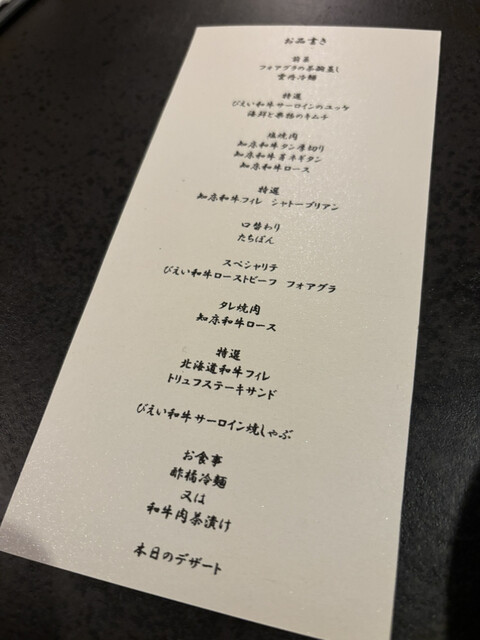 お品書き
前菜
フォアグラの茶碗蒸し
雲丹冷麺
特選
びえい和牛サーロインのユッケ
海鮮と果物のキムチ
塩焼肉
知床和牛タン厚切り
知床和牛芽ネギタン
知床和牛ロース
特選
知床和牛フィレ シャトーブリアン
口替わり
たちぽん
スペシャリテ
びえい和牛ローストビーフ フォアグラ
タレ焼肉
知床和牛ロース
特選
北海道和牛フィレ
トリュフステーキサンド
びえい和牛サーロイン焼しゃぶ
お食事
酢橘冷麺
又は
和牛肉茶漬け
本日のデザート